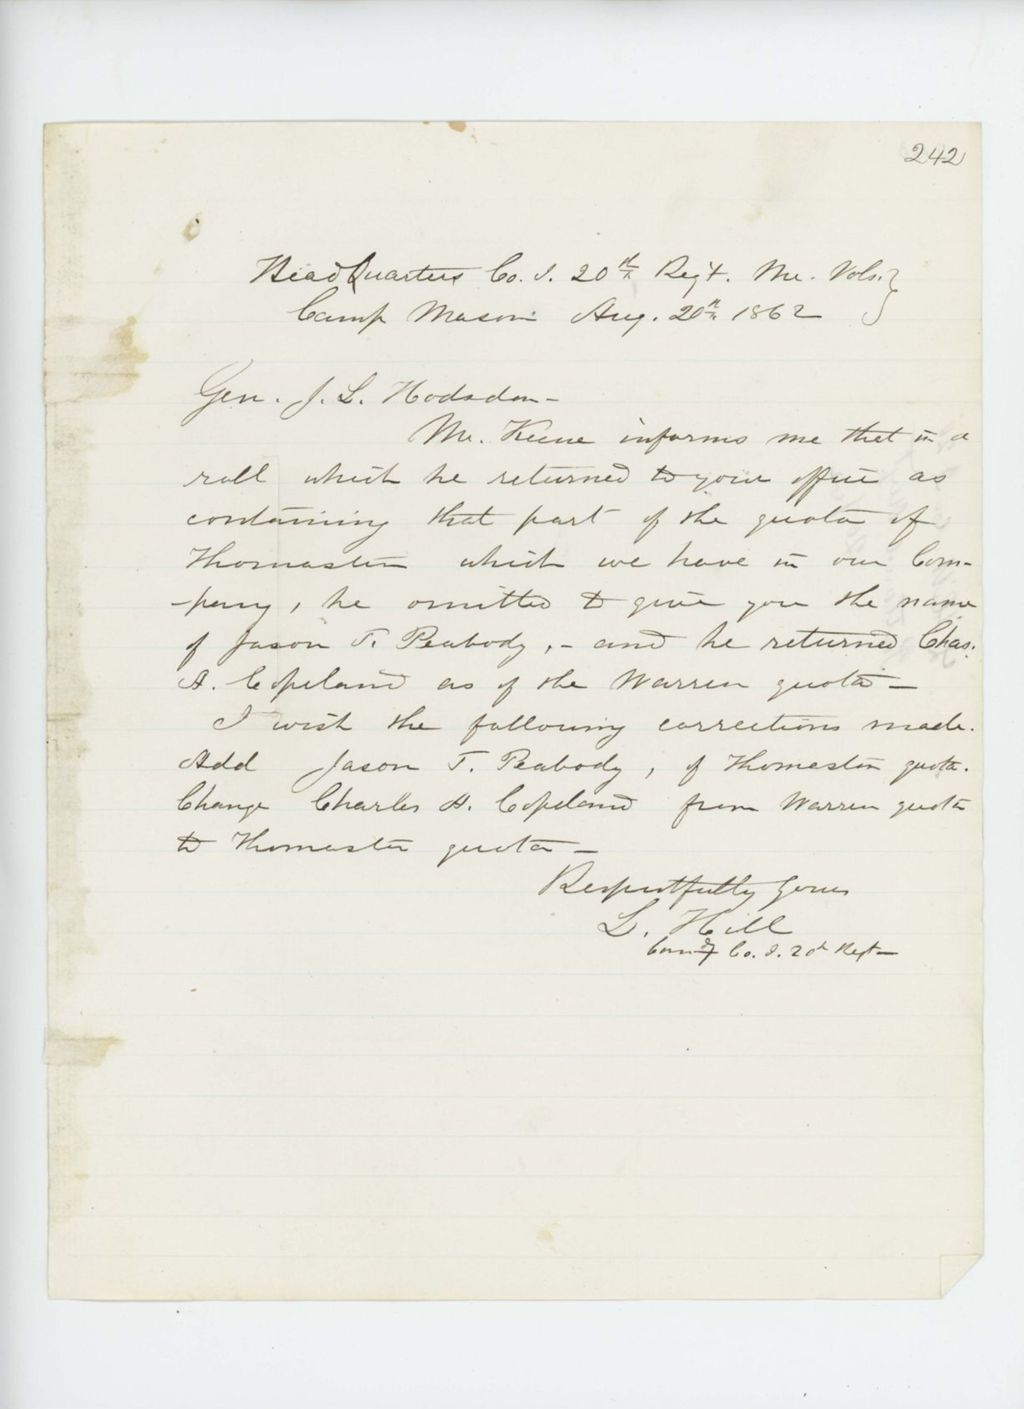 242
Head Quarters Co. I. 20th Reg't. Me. Vols.}
Camp Mason Aug. 20th 1862
Gen. J. L. Hodsdon -
Mr. Keene informs me that in a
roll which he returned to your office as
containing that part of the quota of
Thomaston which we have in our Com-
-pany, he omitted to give you the name
of Jason T. Peabody, - and he returned Chas.
A. Copeland as of the Warren quota -
I wish the following corrections made.
Add Jason T. Peabody, of Thomaston quota.
Change Charles A. Copeland from Warren quota
to Thomaston quota -
Respectfully Yours
L. Hill
Com'd'g Co. I. 20th Regt -